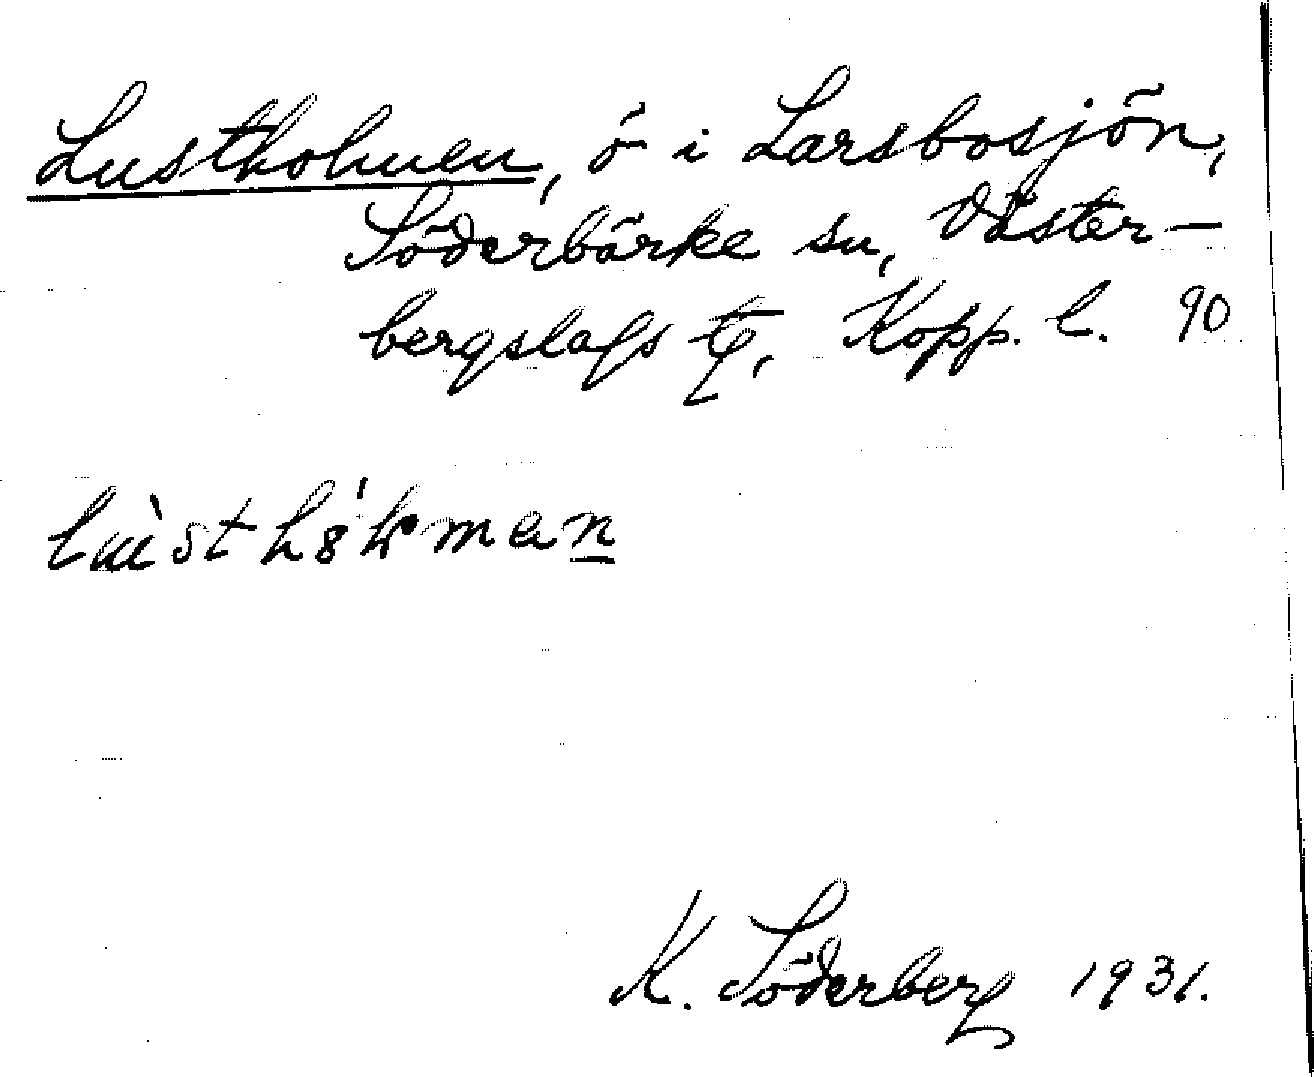 Lustholmen, ö i Larsbosjön,
Söderbärke sn, Väster-
bergslags tg, Kopp. l. 90
K. Söderberg 1931.